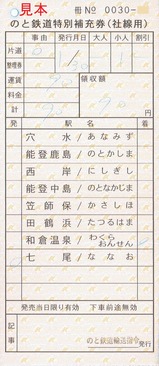 見本 冊№ 0030-
のと鉄道特別補充券(社線用)
事由 発行月日 大人 小人 割引
片道
整理券
運賃 領収額
料金
計
発 駅名 着
穴水 / あなみず
能登鹿島 / のとかしま
西岸 / にしぎし
能登中島 / のとなかじま
笠師保 / かさしほ
田鶴浜 / たつるはま
和倉温泉 / わくらおんせん
七尾 / ななお
発売当日限り有効 下車前途無効
記事
のと鉄道輸送指令
発行